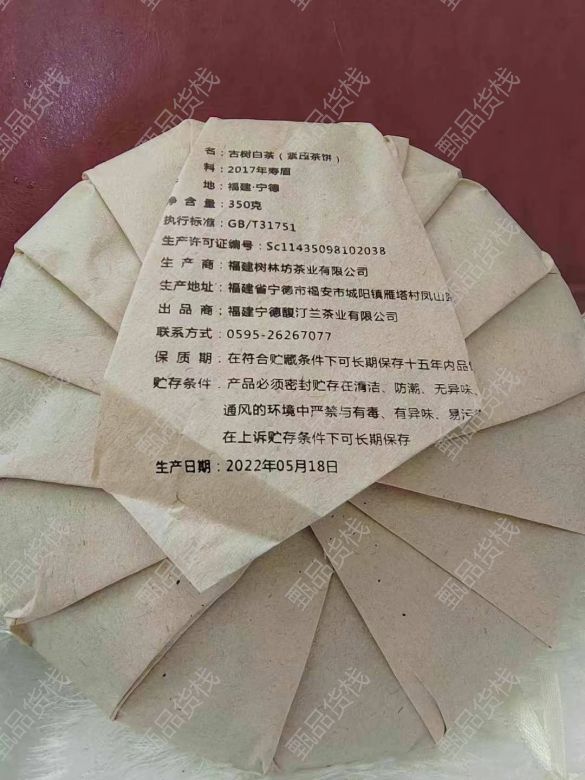 名：古树白茶（紧压茶饼）
料：2017年寿眉
地：福建·宁德
净含量：350克
执行标准：GB/T31751
生产许可证编号：Sc11435098102038
生产商：福建树林坊茶业有限公司
生产地址：福建省宁德市福安市城阳镇雁塔村凤山路
出品商：福建宁德馥汀兰茶业有限公司
联系方式：0595-26267077
保质期：在符合贮藏条件下可长期保存十五年内品
贮存条件．产品必须密封贮存在清洁、防潮、无异味、
通风的环境中严禁与有毒、有异味、易污
在上诉贮存条件下可长期保存
生产日期：2022年05月18日
甄品货栈